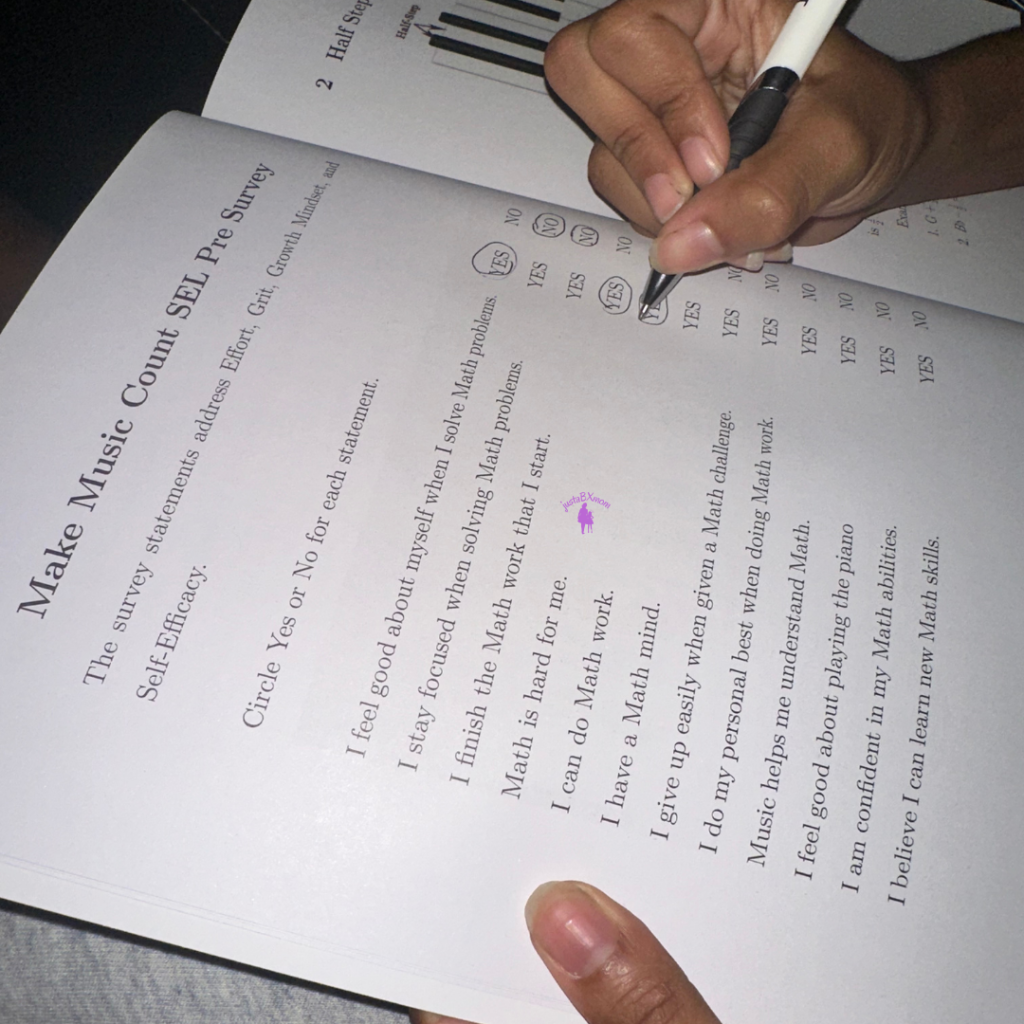 Make Music Count SEL Pre Survey
The survey statements address Effort, Grit, Growth Mindset, and
Self-Efficacy.
Circle Yes or No for each statement.
I feel good about myself when I solve Math problems. YES NO
I stay focused when solving Math problems. YES NO
I finish the Math work that I start. YES NO
Math is hard for me. YES NO
I can do Math work. YES
I have a Math mind. YES NO
I give up easily when given a Math challenge. YES NO
I do my personal best when doing Math work. YES NO
Music helps me understand Math. YES NO
I feel good about playing the piano YES NO
I am confident in my Math abilities. YES NO
I believe I can learn new Math skills. YES NO
2 Half Step
Half-Step
is
1. G +
2.
justaBXmom